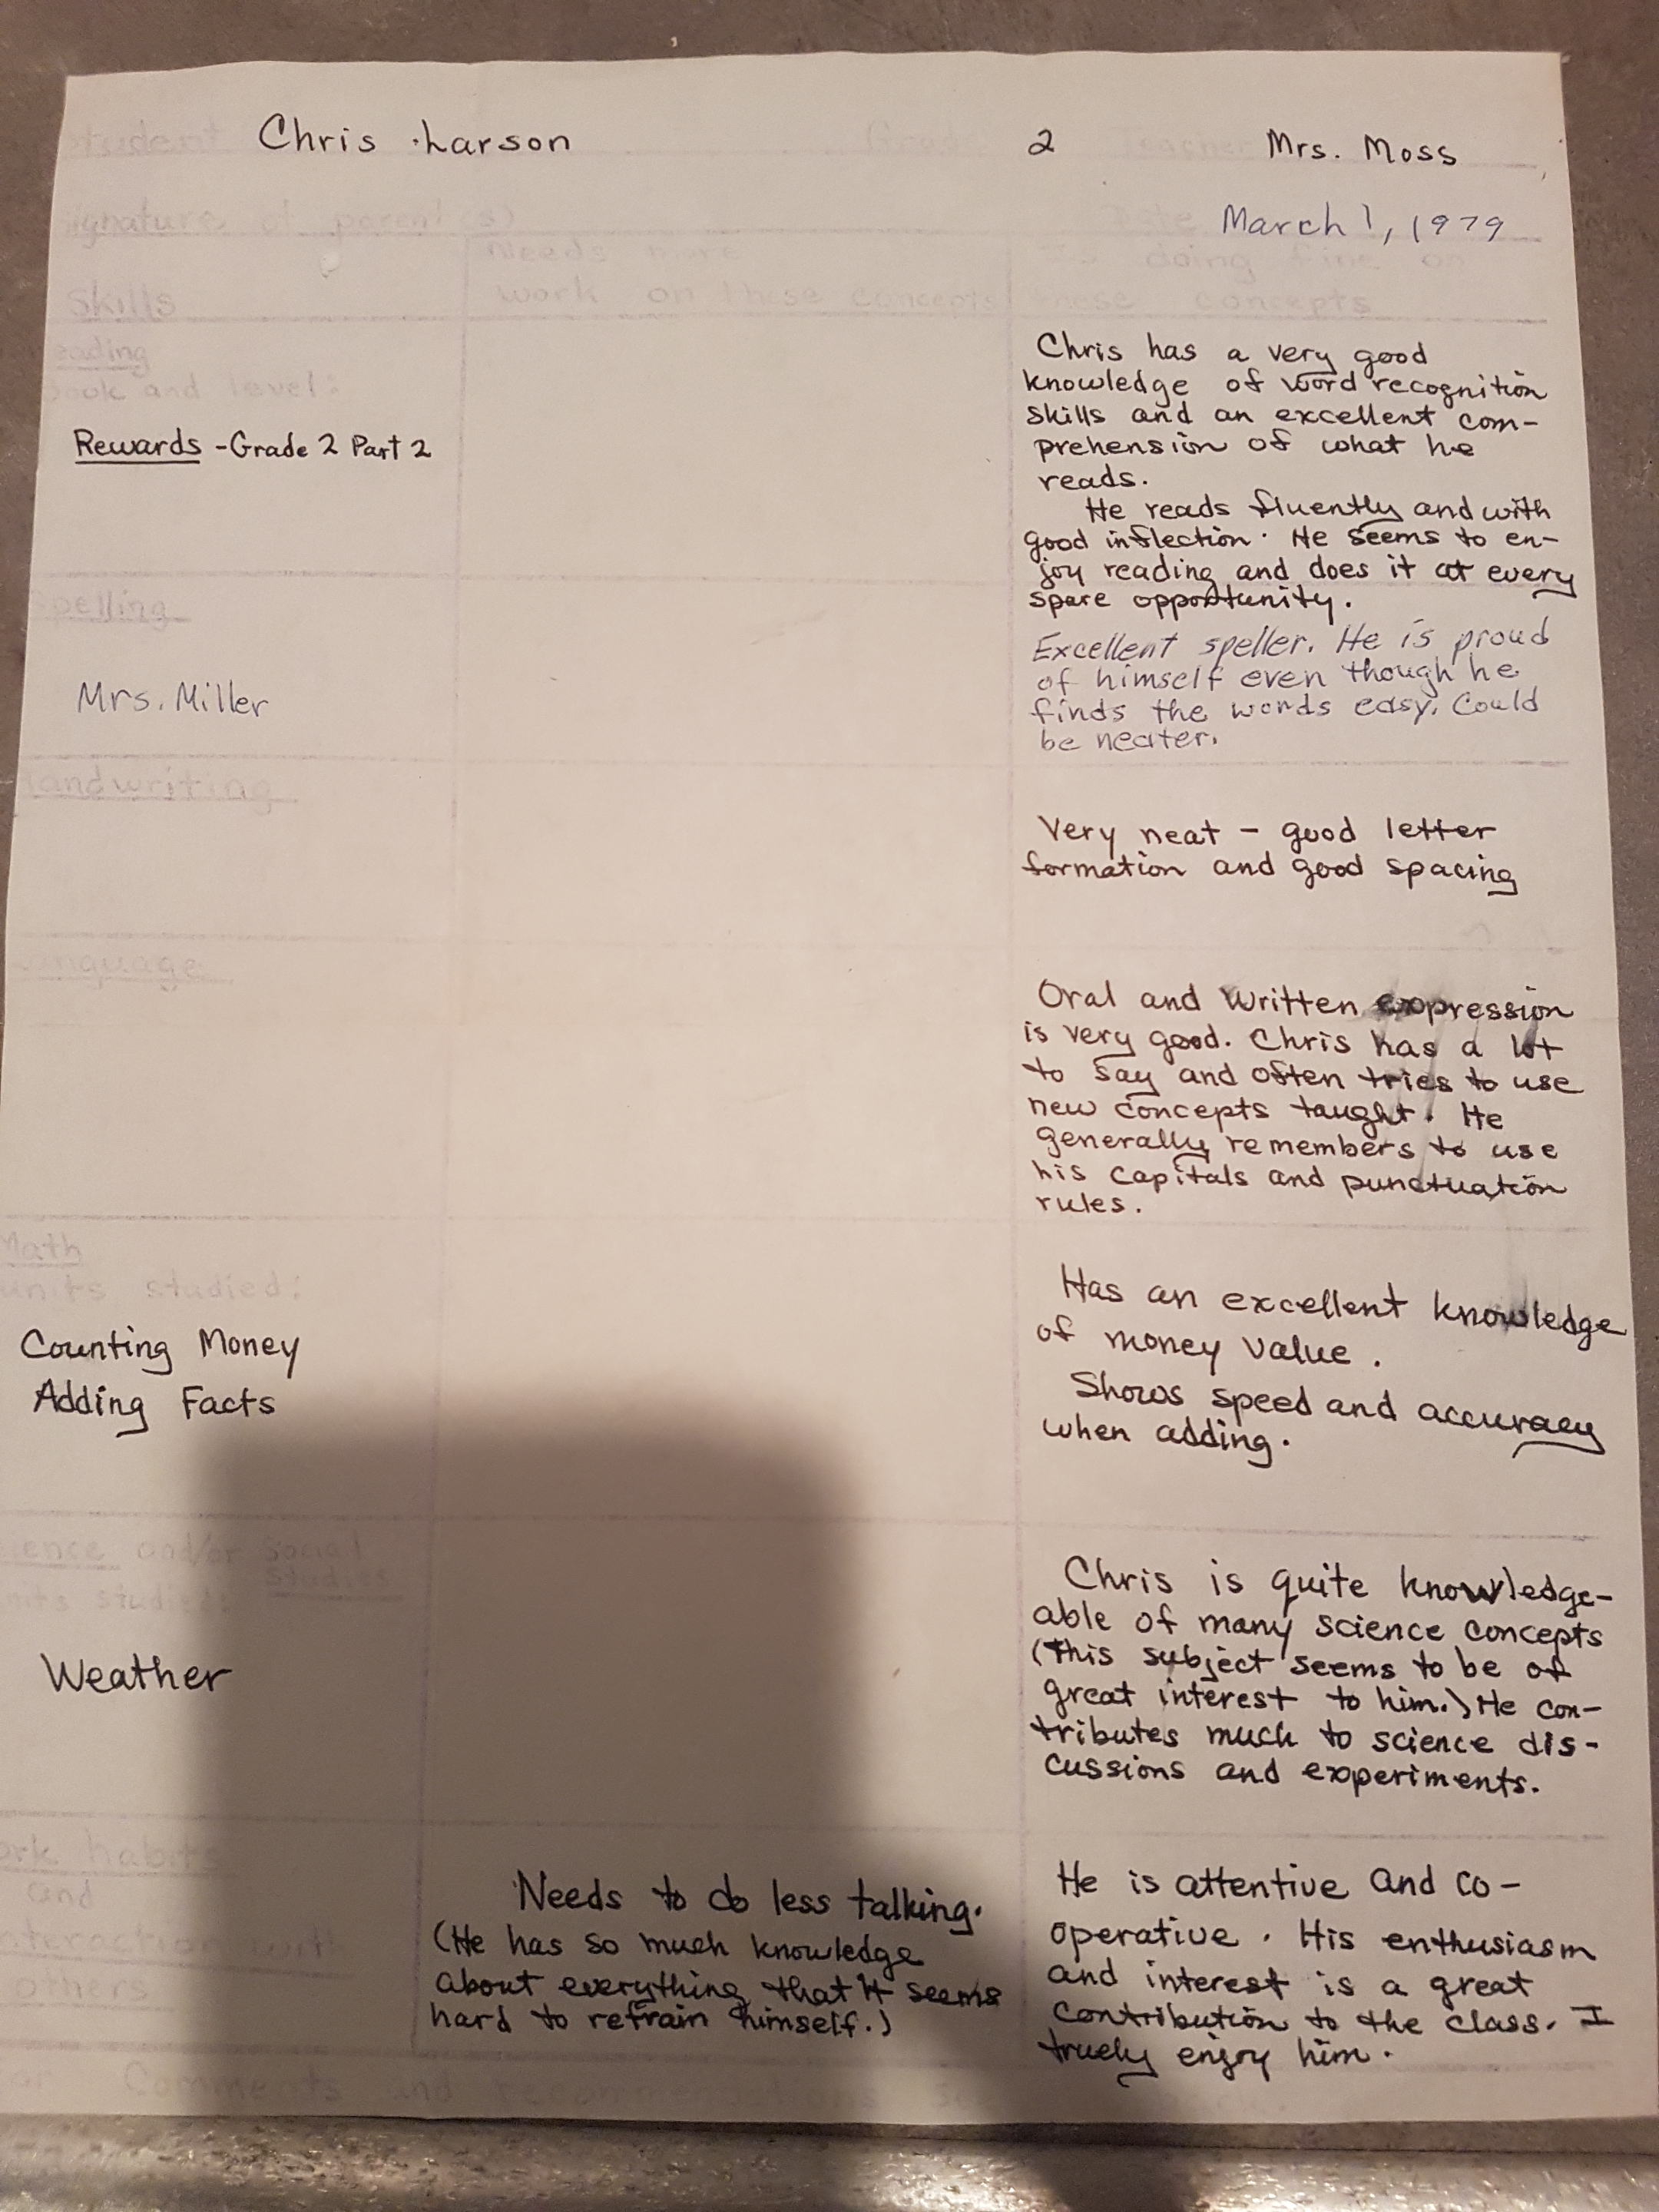 Student Chris Larson Grade 2 Teacher Mrs. Moss
Signature of parent(s) Date March 1, 1979
Skills
Needs more
work on these concepts
is doing fine on
these concepts
Reading
book and level:
Rewards - Grade 2 Part 2
Chris has a very good
knowledge of word recognition
skills and an excellent com-
prehension of what he
reads.
He reads fluently and with
good inflection. He seems to en-
joy reading and does it at every
spare opportunity.
Spelling
Mrs. Miller
Excellent speller. He is proud
of himself even though he
finds the words easy. Could
be neater.
Handwriting
Very neat - good letter
formation and good spacing
Language
Oral and written expression
is very good. Chris has a lot
to say and often tries to use
new concepts taught. He
generally remembers to use
his capitals and punctuation
rules.
Math
units studied:
Counting Money
Adding Facts
Has an excellent knowledge
of money value.
Shows speed and accuracy
when adding.
Science and/or Social
Studies
units studied:
Weather
Chris is quite knowledge-
able of many science concepts
(this subject seems to be of
great interest to him.) He con-
tributes much to science dis-
cussions and experiments.
Work habits
and
interaction with
others
Needs to do less talking.
(He has so much knowledge
about everything that it seems
hard to refrain himself.)
He is attentive and co-
operative. His enthusiasm
and interest is a great
contribution to the class. I
truely enjoy him.
Comments and recommendations